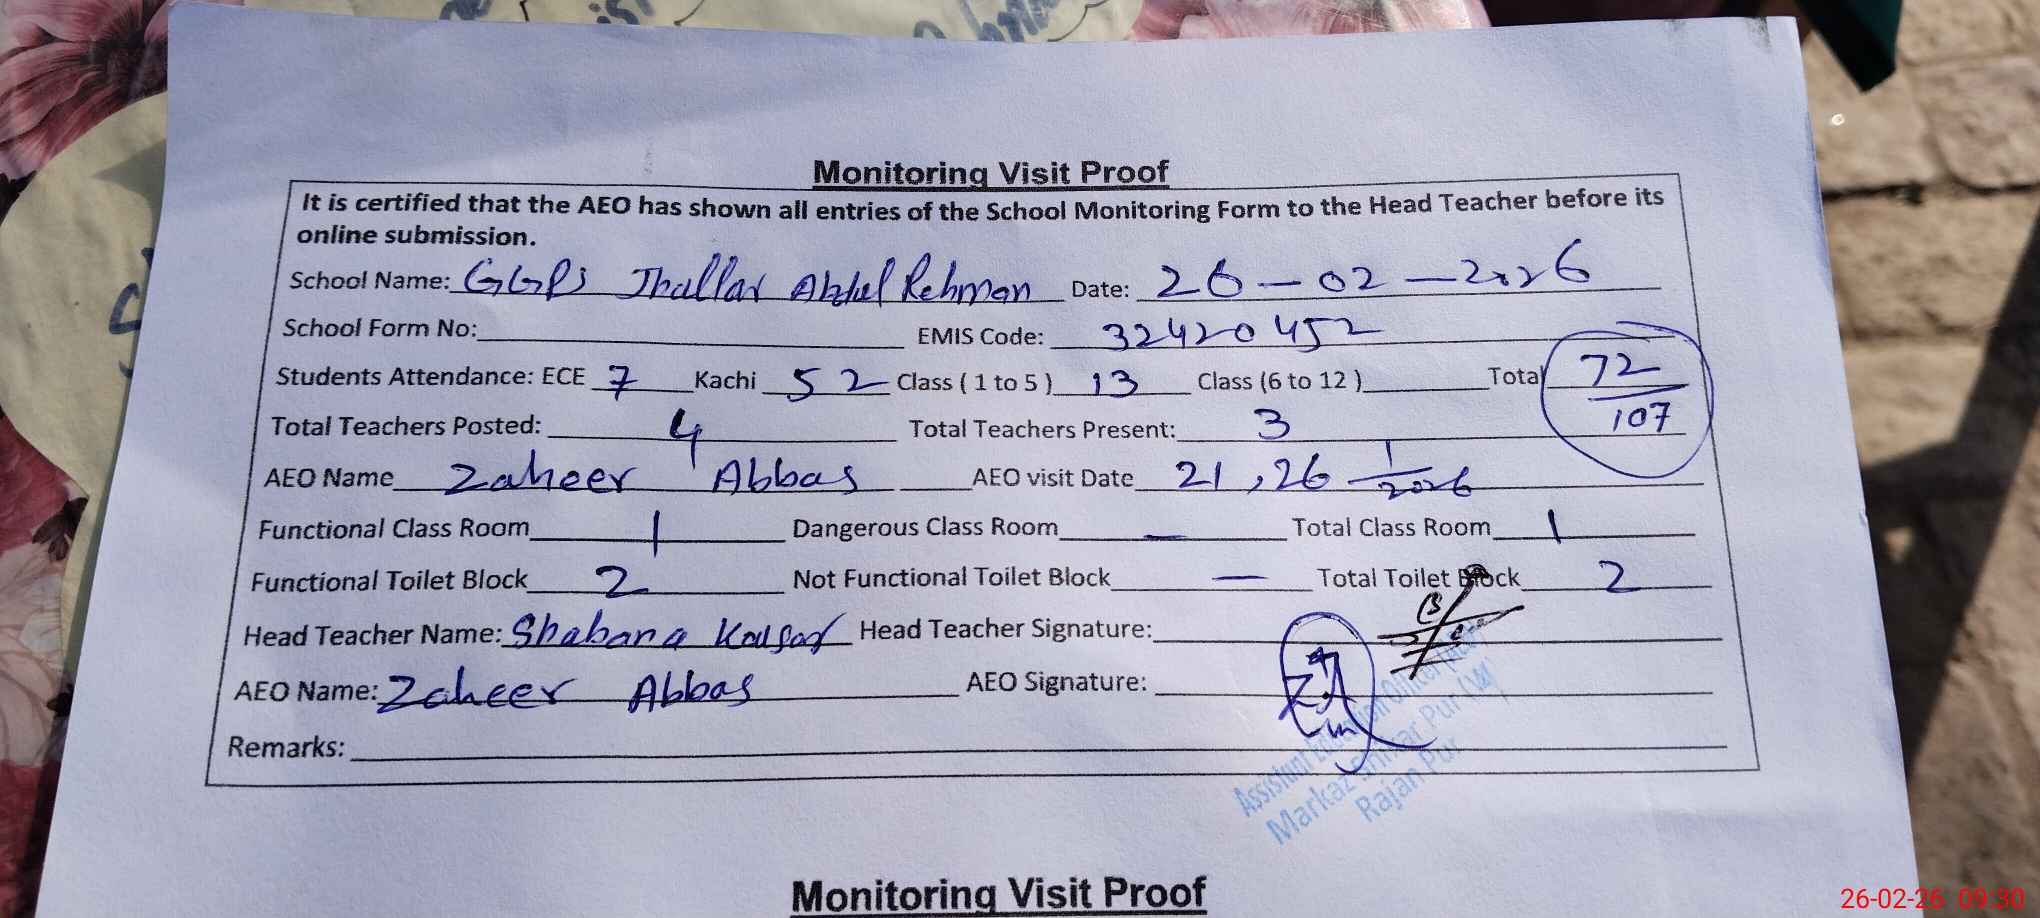 Monitoring Visit Proof
It is certified that the AEO has shown all entries of the School Monitoring Form to the Head Teacher before its
online submission.
School Name: GGPS Jhallar Abdul Rehman Date: 26-02-2026
School Form No: EMIS Code: 32420452
Students Attendance: ECE 7 Kachi 52 Class ( 1 to 5 ) 13 Class (6 to 12 ) Total 72/107
Total Teachers Posted: 4 Total Teachers Present: 3
AEO Name Zaheer Abbas AEO visit Date 21,26 1/2026
Functional Class Room 1 Dangerous Class Room — Total Class Room 1
Functional Toilet Block 2 Not Functional Toilet Block — Total Toilet Block 2
Head Teacher Name: Shabana Kausar Head Teacher Signature:
AEO Name: Zaheer Abbas AEO Signature:
Remarks:
Assistant Education Officer
Markaz Pur
Rajan Pur
Monitoring Visit Proof
26-02-26 09:30